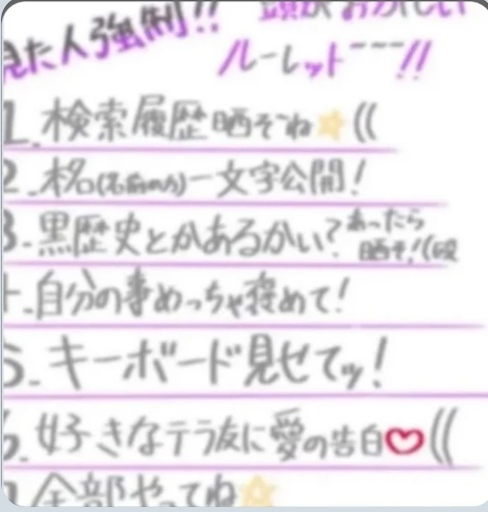 見た人強制!! 頭がおかしい
ルーレット~~~!!
1. 検索履歴晒そね☆((
2. 本名(名前のみ)一文字公開!
3. 黒歴史とかあるかい?あったら
晒そ!(殴
4. 自分の事めっちゃ褒めて!
5. キーボード見せてッ!
6. 好きなテラ友に愛の告白♡((
7. 全部やってね☆